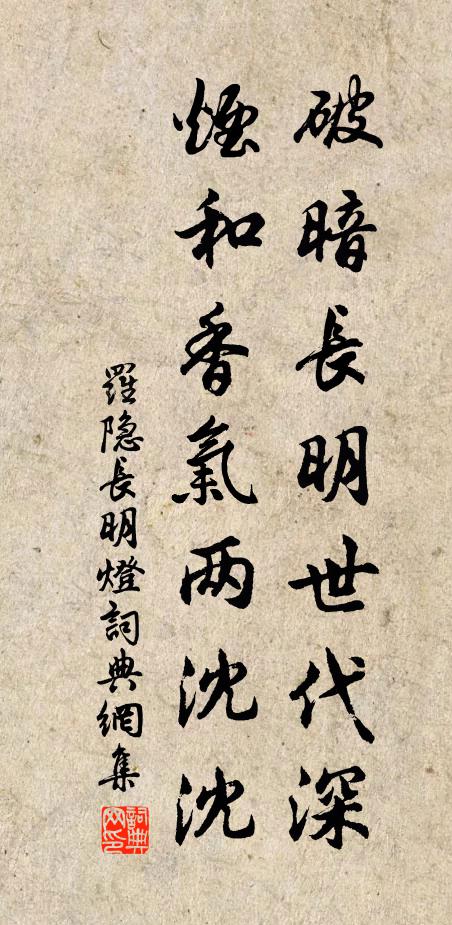 破暗長明世代深
煙和香氣两沈沈
羅隐長明燈詞典網集
詞典网印